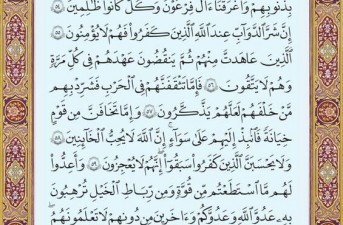 بِذُنُوبِهِمْ وَأَغْرَقْنَا ءَالَ فِرْعَوْنَ وَكُلٌّ كَانُوا ظَٰلِمِينَ ٥٤
إِنَّ شَرَّ ٱلدَّوَآبِّ عِندَ ٱللَّهِ ٱلَّذِينَ كَفَرُوا فَهُمْ لَا يُؤْمِنُونَ ٥٥
ٱلَّذِينَ عَٰهَدتَّ مِنْهُمْ ثُمَّ يَنقُضُونَ عَهْدَهُمْ فِي كُلِّ مَرَّةٍ
وَهُمْ لَا يَتَّقُونَ ٥٦ فَإِمَّا تَثْقَفَنَّهُمْ فِي ٱلْحَرْبِ فَشَرِّدْ بِهِم
مَّنْ خَلْفَهُمْ لَعَلَّهُمْ يَذَّكَّرُونَ ٥٧ وَإِمَّا تَخَافَنَّ مِن قَوْمٍ
خِيَانَةً فَٱنۢبِذْ إِلَيْهِمْ عَلَىٰ سَوَآءٍ إِنَّ ٱللَّهَ لَا يُحِبُّ ٱلْخَآئِنِينَ ٥٨
وَلَا يَحْسَبَنَّ ٱلَّذِينَ كَفَرُوا سَبَقُوٓا إِنَّهُمْ لَا يُعْجِزُونَ ٥٩ وَأَعِدُّوا
لَهُم مَّا ٱسْتَطَعْتُم مِّن قُوَّةٍ وَمِن رِّبَاطِ ٱلْخَيْلِ تُرْهِبُونَ
بِهِۦ عَدُوَّ ٱللَّهِ وَعَدُوَّكُمْ وَءَاخَرِينَ مِن دُونِهِمْ لَا تَعْلَمُونَهُمُ